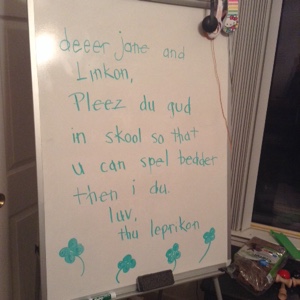 deeer jane and
Linkon,
Pleez du gud
in skool so that
u can spel bedder
then i du.
luv,
thu leprikon